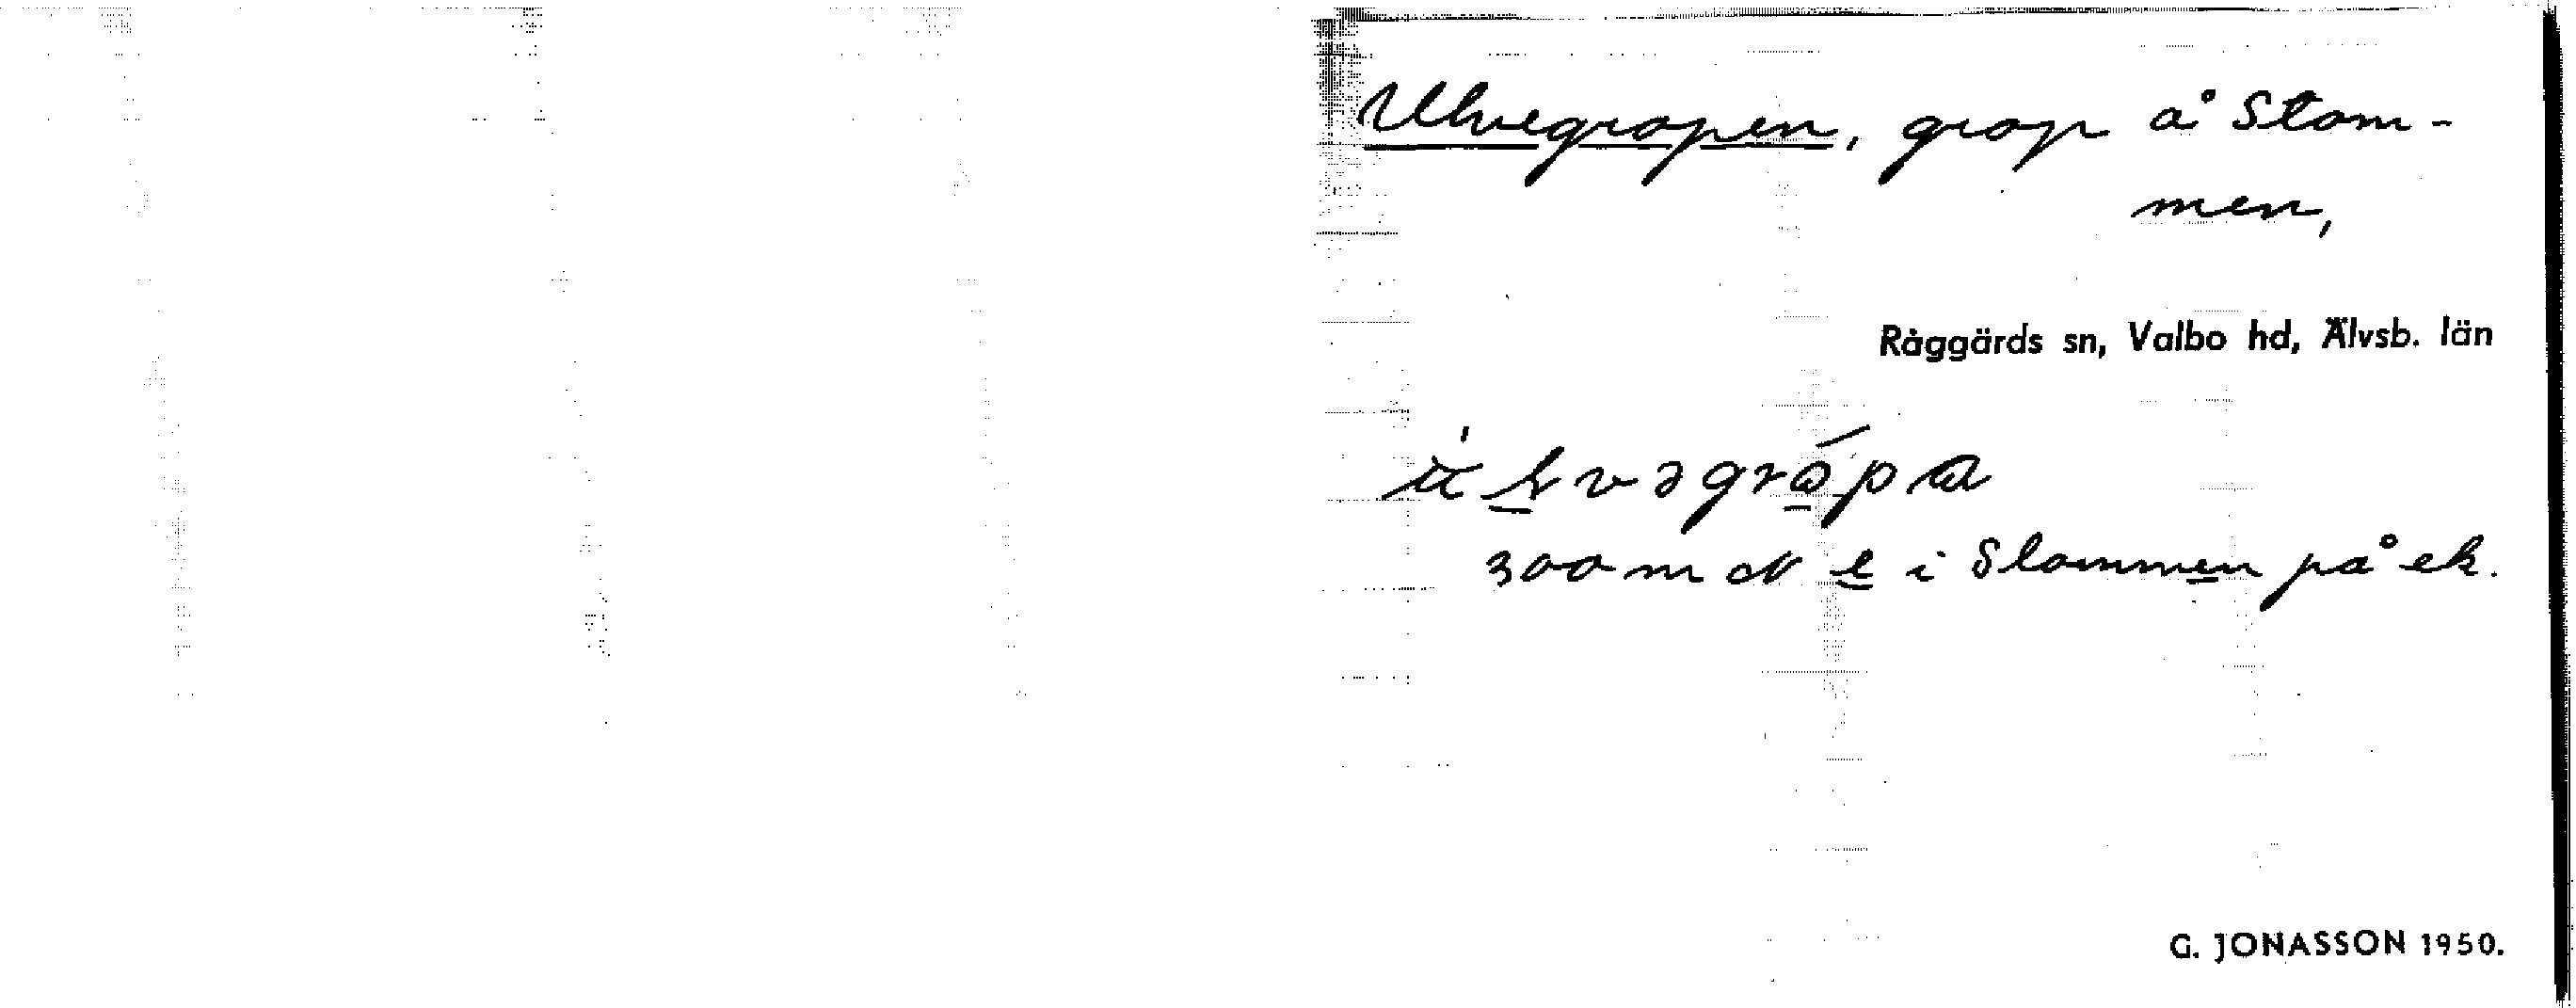 Ulvegropen, grop å Stom-
men,
Råggärds sn, Valbo hd, Älvsb. län
300 m N e i Stommen på ek.
G. JONASSON 1950.